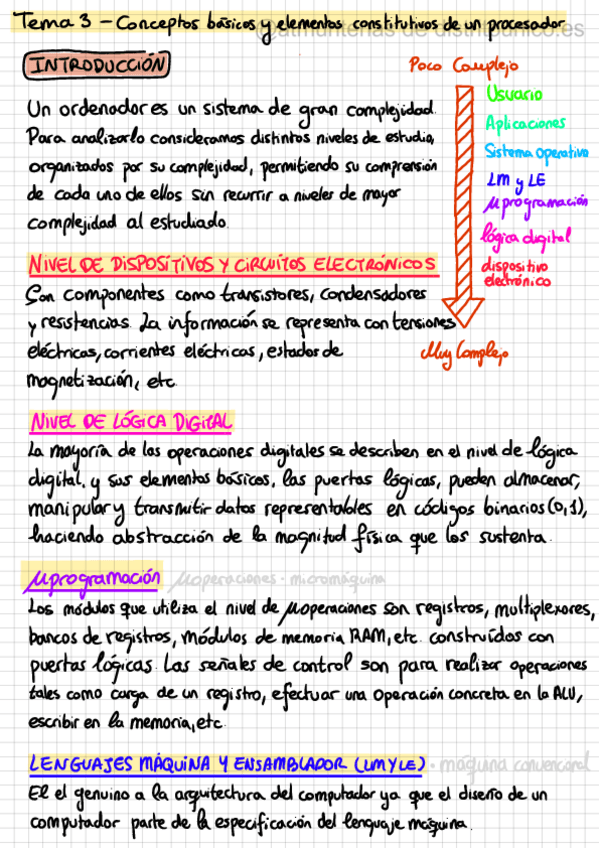 Tema 3 - Conceptos básicos y elementos constitutivos de un procesador
INTRODUCCIÓN
Un ordenador es un sistema de gran complejidad.
Para analizarlo consideramos distintos niveles de estudio,
organizados por su complejidad, permitiendo su comprensión
de cada uno de ellos sin recurrir a niveles de mayor
complejidad al estudiado.
Poco Complejo
Usuario
Aplicaciones
Sistema operativo
LM y LE
μprogramación
lógica digital
dispositivo
electrónico
Muy Complejo
NIVEL DE DISPOSITIVOS Y CIRCUITOS ELECTRÓNICOS
Son componentes como transistores, condensadores
y resistencias. La información se representa con tensiones
eléctricas, corrientes eléctricas, estados de
magnetización, etc.
NIVEL DE LÓGICA DIGITAL
La mayoría de las operaciones digitales se describen en el nivel de lógica
digital, y sus elementos básicos, las puertas lógicas, pueden almacenar,
manipular y transmitir datos representables en códigos binarios (0,1),
haciendo abstracción de la magnitud física que los sustenta.
μprogramación μoperaciones · micromáquina
Los módulos que utiliza el nivel de μoperaciones son registros, multiplexores,
bancos de registros, módulos de memoria RAM, etc. construídos con
puertas lógicas. Las señales de control son para realizar operaciones
tales como carga de un registro, efectuar una operación concreta en la ALU,
escribir en la memoria, etc.
LENGUAJES MÁQUINA Y ENSAMBLADOR (LM Y LE) · máquina convencional
El el genuino a la arquitectura del computador ya que el diseño de un
computador parte de la especificación del lenguaje máquina.